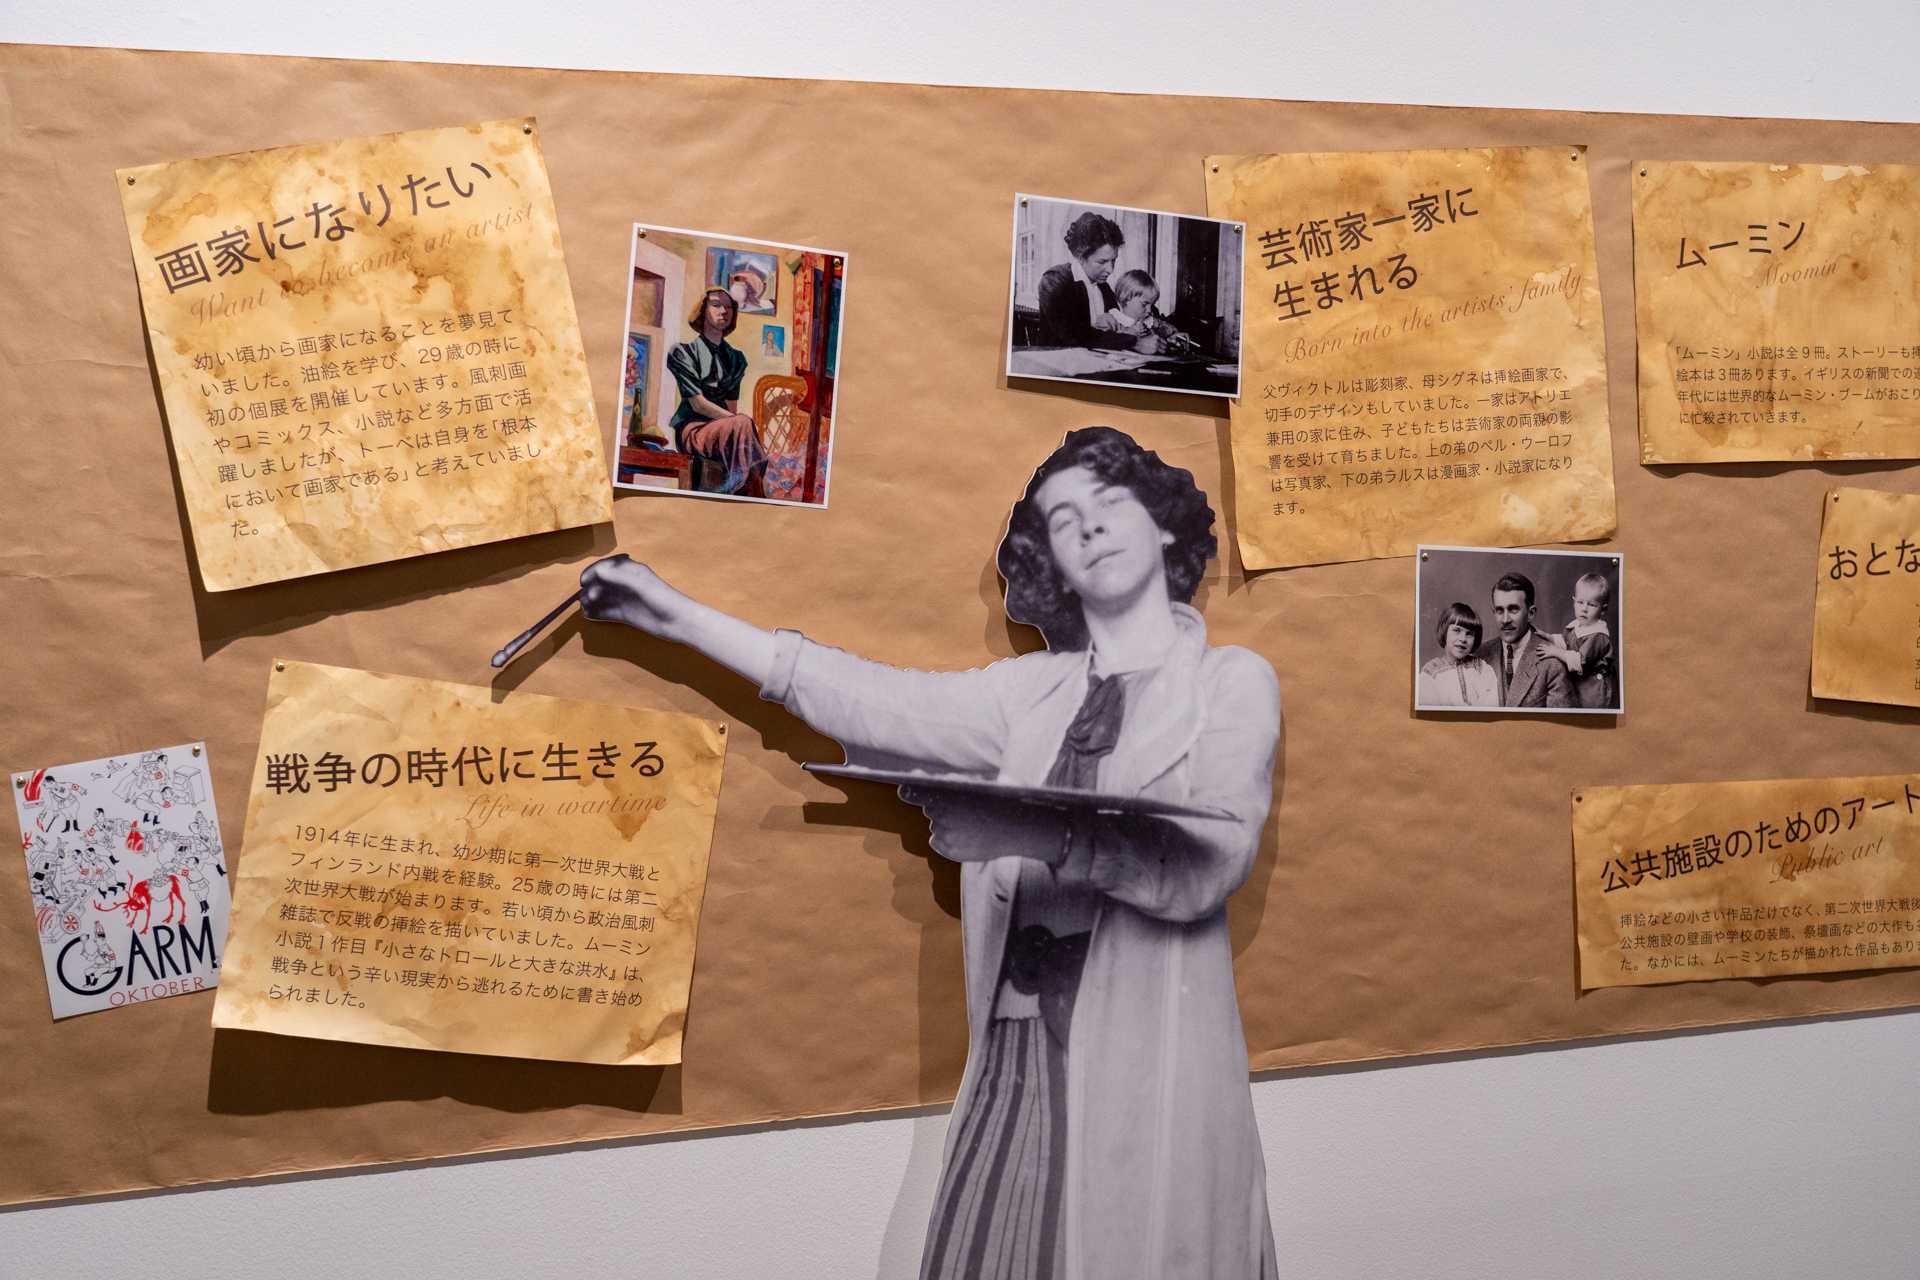 画家になりたい
Want to become an artist
幼い頃から画家になることを夢見て
いました。油絵を学び、29歳の時に
初の個展を開催しています。風刺画
やコミックス、小説など多方面で活
躍しましたが、トーベは自身を「根本
において画家である」と考えていまし
た。
戦争の時代に生きる
Life in wartime
1914年に生まれ、幼少期に第一次世界大戦と
フィンランド内戦を経験。25歳の時には第二
次世界大戦が始まります。若い頃から政治風刺
雑誌で反戦の挿絵を描いていました。ムーミン
小説1作目『小さなトロールと大きな洪水』は、
戦争という辛い現実から逃れるために書き始め
られました。
GARM
OKTOBER
芸術家一家に
生まれる
Born into the artists' family
父ヴィクトルは彫刻家、母シグネは挿絵画家で、
切手のデザインもしていました。一家はアトリエ
兼用の家に住み、子どもたちは芸術家の両親の影
響を受けて育ちました。上の弟のペル・ウーロフ
は写真家、下の弟ラルスは漫画家・小説家になり
ます。
ムーミン
Moomin
「ムーミン」小説は全9冊。ストーリーも挿
絵本は3冊あります。イギリスの新聞での連
年代には世界的なムーミン・ブームがおこり
に忙殺されていきます。
おとな
公共施設のためのアート
Public art
挿絵などの小さい作品だけでなく、第二次世界大戦後
公共施設の壁画や学校の装飾、祭壇画などの大作も
た。なかには、ムーミンたちが描かれた作品もあり